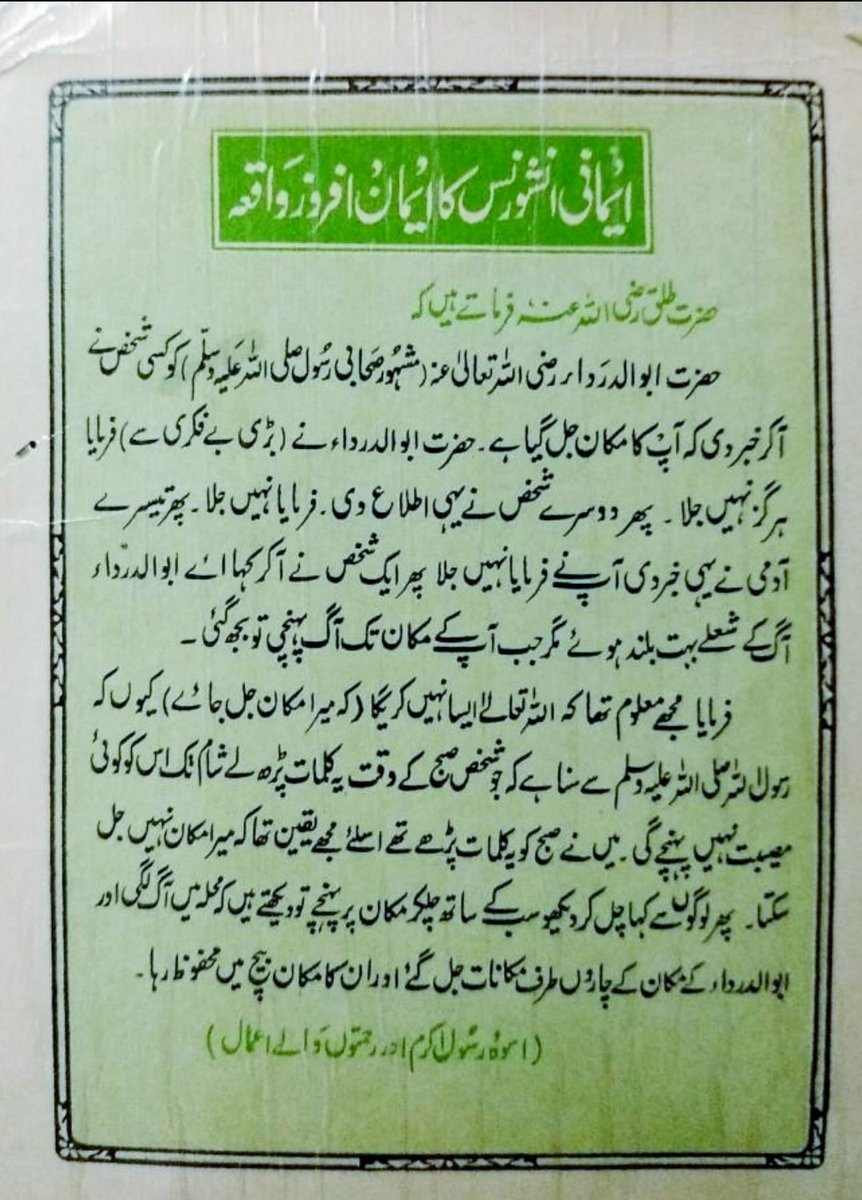 ایمانی انشورنس کا ایمان افروز واقعہ
حضرت طلق رضی اللہ عنہ فرماتے ہیں کہ
حضرت ابوالدرداء رضی اللہ تعالیٰ عنہ (مشہور صحابی رسول صلی اللہ علیہ وسلم) کو کسی شخص نے
آکر خبر دی کہ آپ کا مکان جل گیا ہے۔ حضرت ابوالدرداء نے (بڑی بے فکری سے) فرمایا
ہرگز نہیں جلا۔ پھر دوسرے شخص نے یہی اطلاع دی۔ فرمایا نہیں جلا۔ پھر تیسرے
آدمی نے یہی خبر دی آپ نے فرمایا نہیں جلا پھر ایک شخص نے آکر کہا اے ابوالدرداء
آگ کے شعلے بہت بلند ہوئے مگر جب آپ کے مکان تک آگ پہنچی تو بجھ گئی۔
فرمایا مجھے معلوم تھا کہ اللہ تعالےٰ ایسا نہیں کریگا (کہ میرا مکان جل جائے) کیوں کہ
رسول اللہ صلی اللہ علیہ وسلم سے سنا ہے کہ جو شخص صبح کے وقت یہ کلمات پڑھ لے شام تک اس کو کوئی
مصیبت نہیں پہنچے گی۔ میں نے صبح کو یہ کلمات پڑھے تھے اسلئے مجھے یقین تھا کہ میرا مکان نہیں جل
سکتا۔ پھر لوگوں سے کہا چل کر دیکھو سب کے ساتھ چلکر مکان پر پہنچے تو دیکھتے ہیں کہ محلہ میں آگ لگی اور
ابوالدرداء کے مکان کے چاروں طرف مکانات جل گئے اور ان کا مکان بیچ میں محفوظ رہا۔
(اسوۂ رسول اکرم اور رحمتوں والے اعمال)